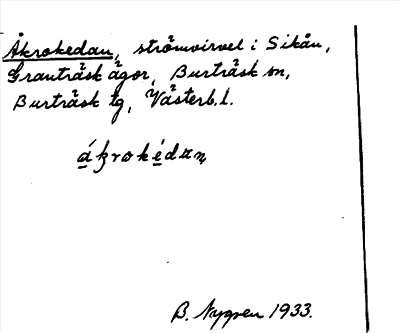 Åkrokedan, strömvirvel i Sikån,
Granträsk ägor, Burträsk sn,
Burträsk tg, Västerb. l.
á̱krok<u>é</u>dan
B. Nygren 1933.